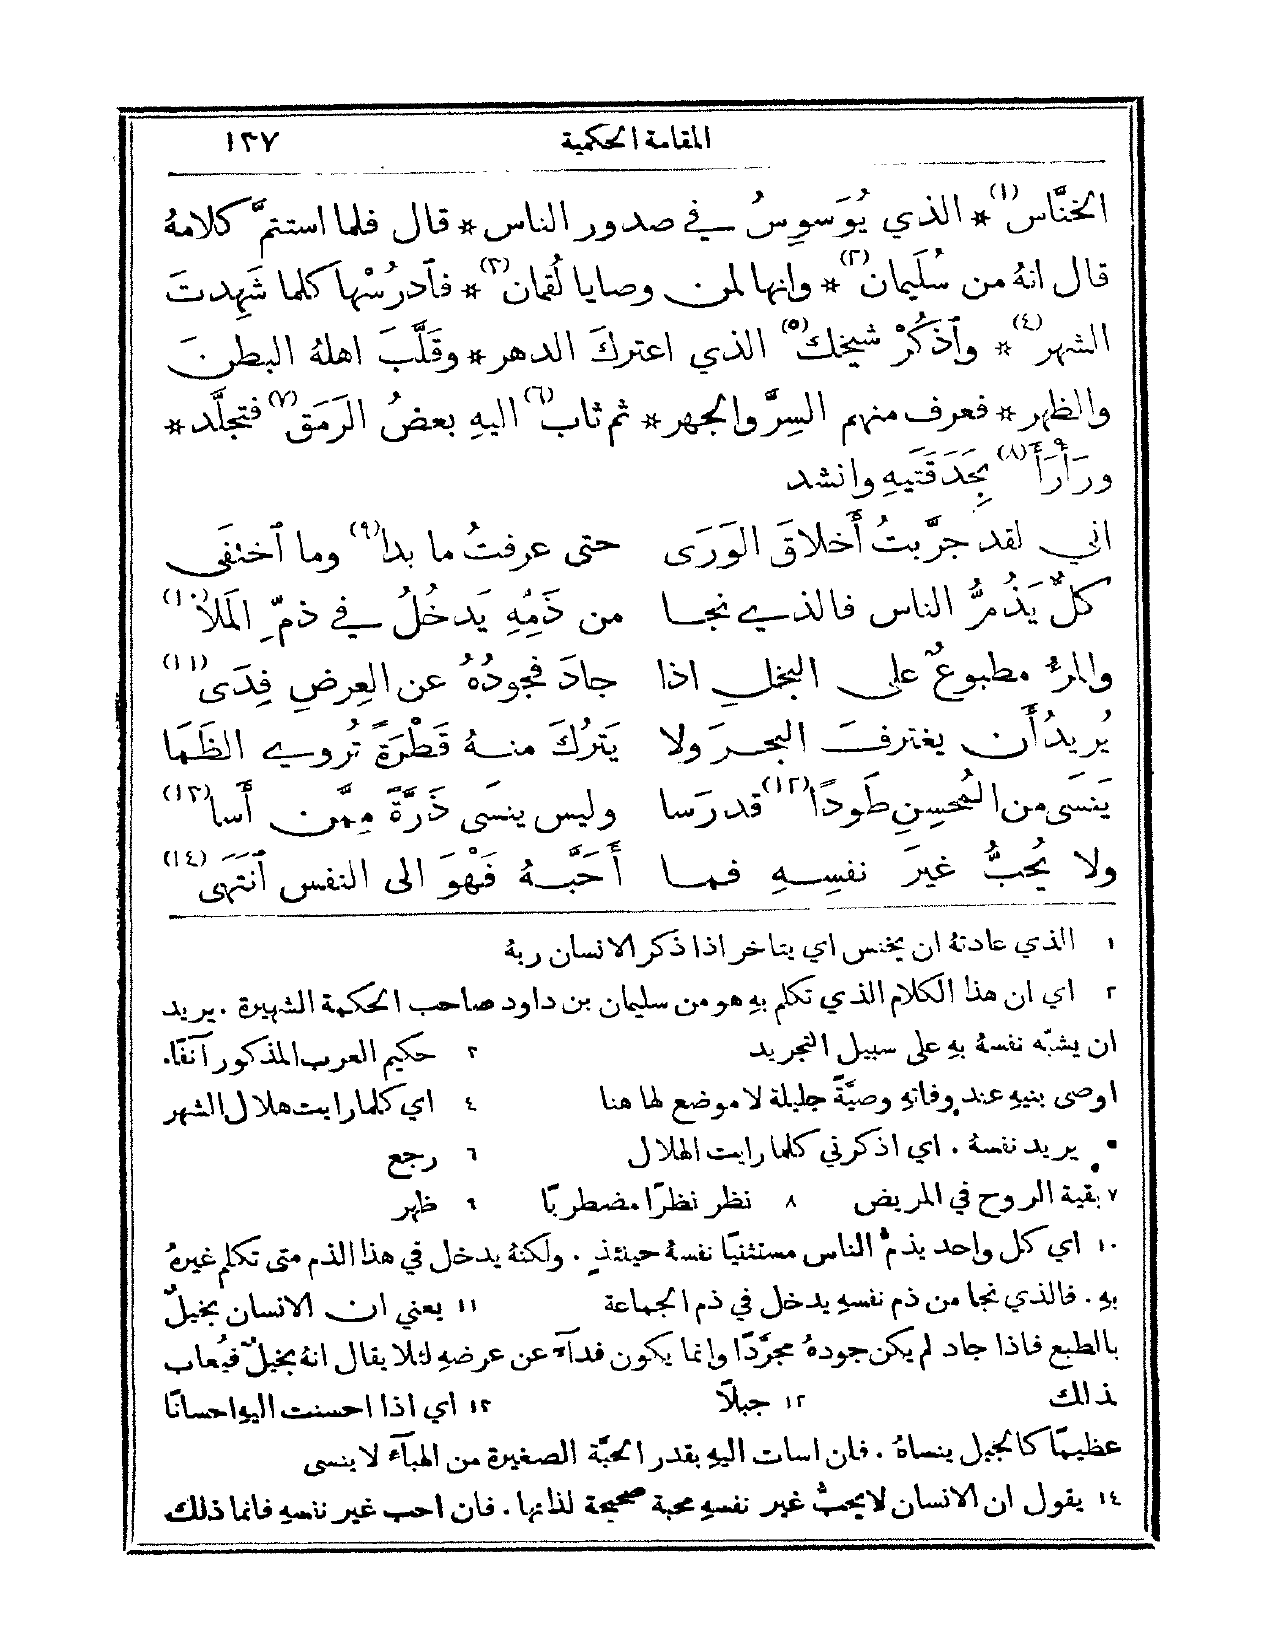 المقامة الحكمية ١٣٧
الخنَّاس(١)* الذي يُوَسوِسُ في صدور الناس* قال فلما استتمَّ كلامهُ
قال انهُ من سُلَيمان(٢)* وانها لمن وصايا لُقمان(٣)* فاَدرُسْها كلما شَهِدتَ
الشهر(٤)* واَذكُرْ شيخك(٥) الذي اعتركَ الدهر* وقَلَّبَ اهلهُ البطن
والظهر* فعرف منهم السِرَّ والجهر* ثم ثاب(٦) اليهِ بعضُ الرَمَق(٧) فتجلَّد*
ورَأرَأَ(٨) بِحَدَقَتَيهِ وانشد
اني لقد جرَّبتُ أَخلاقَ الوَرَى حتى عرفتُ ما بدا(٩) وما اَختفَى
كلٌّ يَذُمُّ الناس فالذي نجا من ذَمِّهِ يَدخُلُ في ذمِّ المَلَا(١٠)
والمرءُ مطبوعٌ على البخلِ اذا جادَ فجُودُهُ عن العِرضِ فِدَى(١١)
يُريدُ أَن يغترفَ البحرَ ولا يَترُكَ منهُ قَطْرَةً تُروي الظَمَا
يَنسَى من المُحسِنِ طَودًا(١٢) قد رَسا وليس ينسَى ذَرَّةً مِمَّن أَسا(١٣)
ولا يُحِبُّ غيرَ نفسِهِ فما أَحَبَّهُ فَهْوَ الى النفس اَنتَهَى(١٤)
١ الذي عادتهُ ان يخنس اي يتاخر اذا ذكر الانسان ربهُ
٢ اي ان هذا الكلام الذي تكلم بهِ هو من سليمان بن داود صاحب الحكمة الشهيرة . يريد
ان يشبّه نفسهُ بهِ على سبيل التجريد ٣ حكيم العرب المذكور آنفًا.
اوصى بنيهِ عند وفاتهِ وصيَّةً جليلة لا موضع لها هنا ٤ اي كلما رايت هلال الشهر
٥ يريد نفسهُ . اي اذكرني كلما رايت الهلال ٦ رجع
٧ بقية الروح في المريض ٨ نظر نظرًا مضطربًا ٩ ظهر
١٠ اي كل واحد يذمُّ الناس مستثنيًا نفسهُ حينئذٍ . ولكنهُ يدخل في هذا الذم متى تكلم غيرهُ
بهِ . فالذي نجا من ذم نفسهِ يدخل في ذم الجماعة ١١ يعني ان الانسان بخيلٌ
بالطبع فاذا جاد لم يكن جودهُ مجرَّدًا وانما يكون فدآءً عن عرضهِ لئلا يقال انهُ بخيلٌ فيُعاب
ذلك ١٢ جبلًا ١٣ اي اذا احسنت اليهِ احسانًا
عظيمًا كالجبل ينساهُ . فان اسات اليهِ بقدر الحبَّة الصغيرة من الهبآء لا ينسى
١٤ يقول ان الانسان لا يحبُّ غير نفسهِ محبة صحيحة لذاتها . فان احب غير نفسهِ فانما ذلك